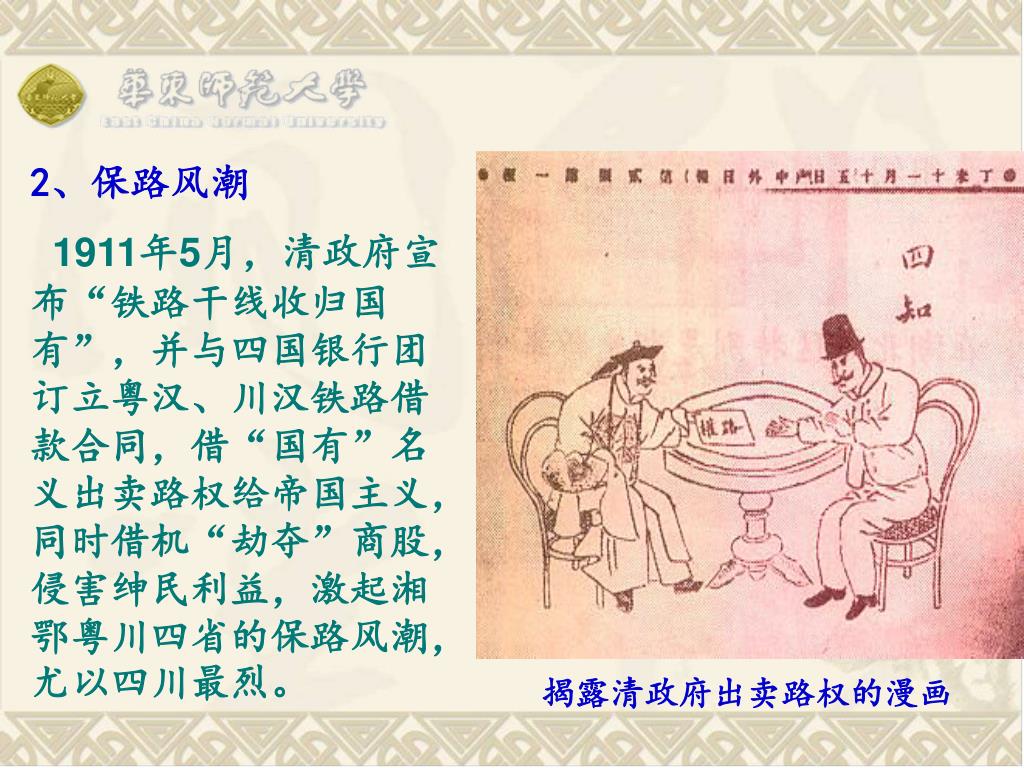 華東師範大學
East China Normal University
2、保路风潮
1911年5月，清政府宣
布“铁路干线收归国
有”，并与四国银行团
订立粤汉、川汉铁路借
款合同，借“国有”名
义出卖路权给帝国主义，
同时借机“劫夺”商股，
侵害绅民利益，激起湘
鄂粤川四省的保路风潮，
尤以四川最烈。
丁未十一月十五日
中外日報
四
知
權路
揭露清政府出卖路权的漫画